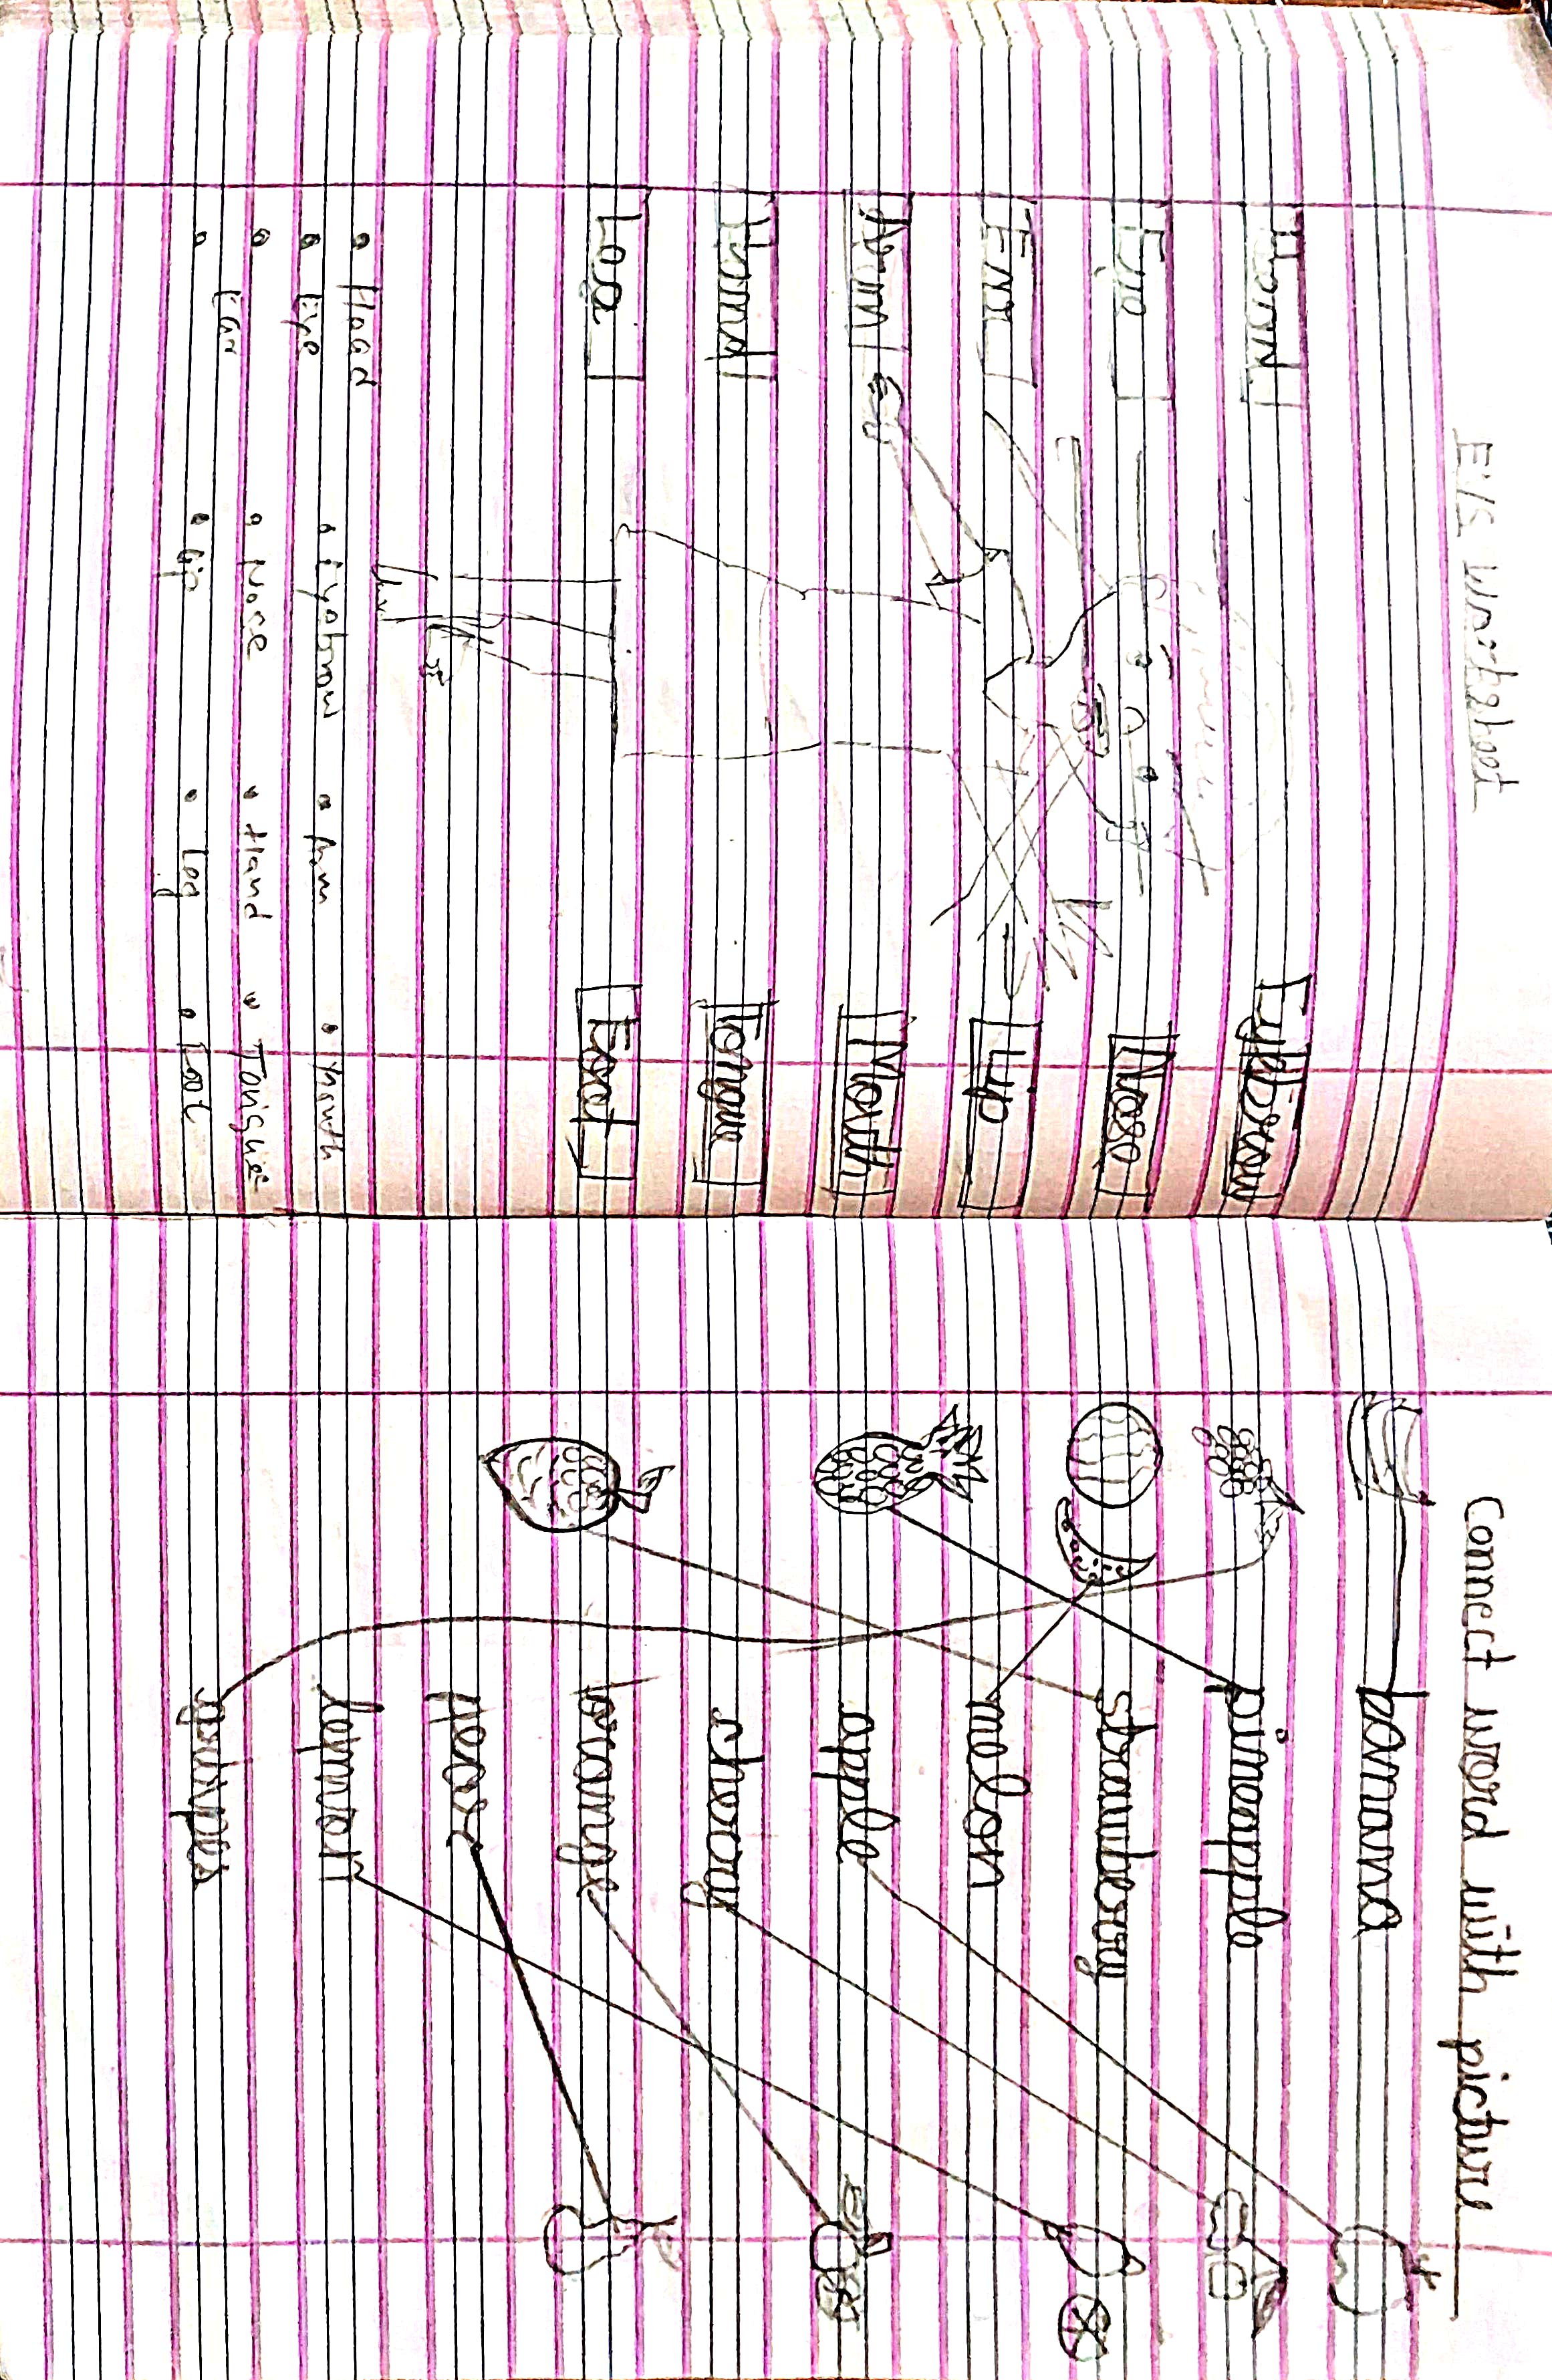 EVS Worksheet
Eyebrow
Eye Nose
Ear Lip
Arm Mouth
Hand Tongue
Leg Foot
• Head • Eyebrow • Arm • Mouth
• Eye • Nose • Hand • Tongue
• Ear • Lip • Leg • Foot
Connect word with picture
banana
pineapple
strawberry
melon
apple
cherry
orange
pear
lemon
grapes